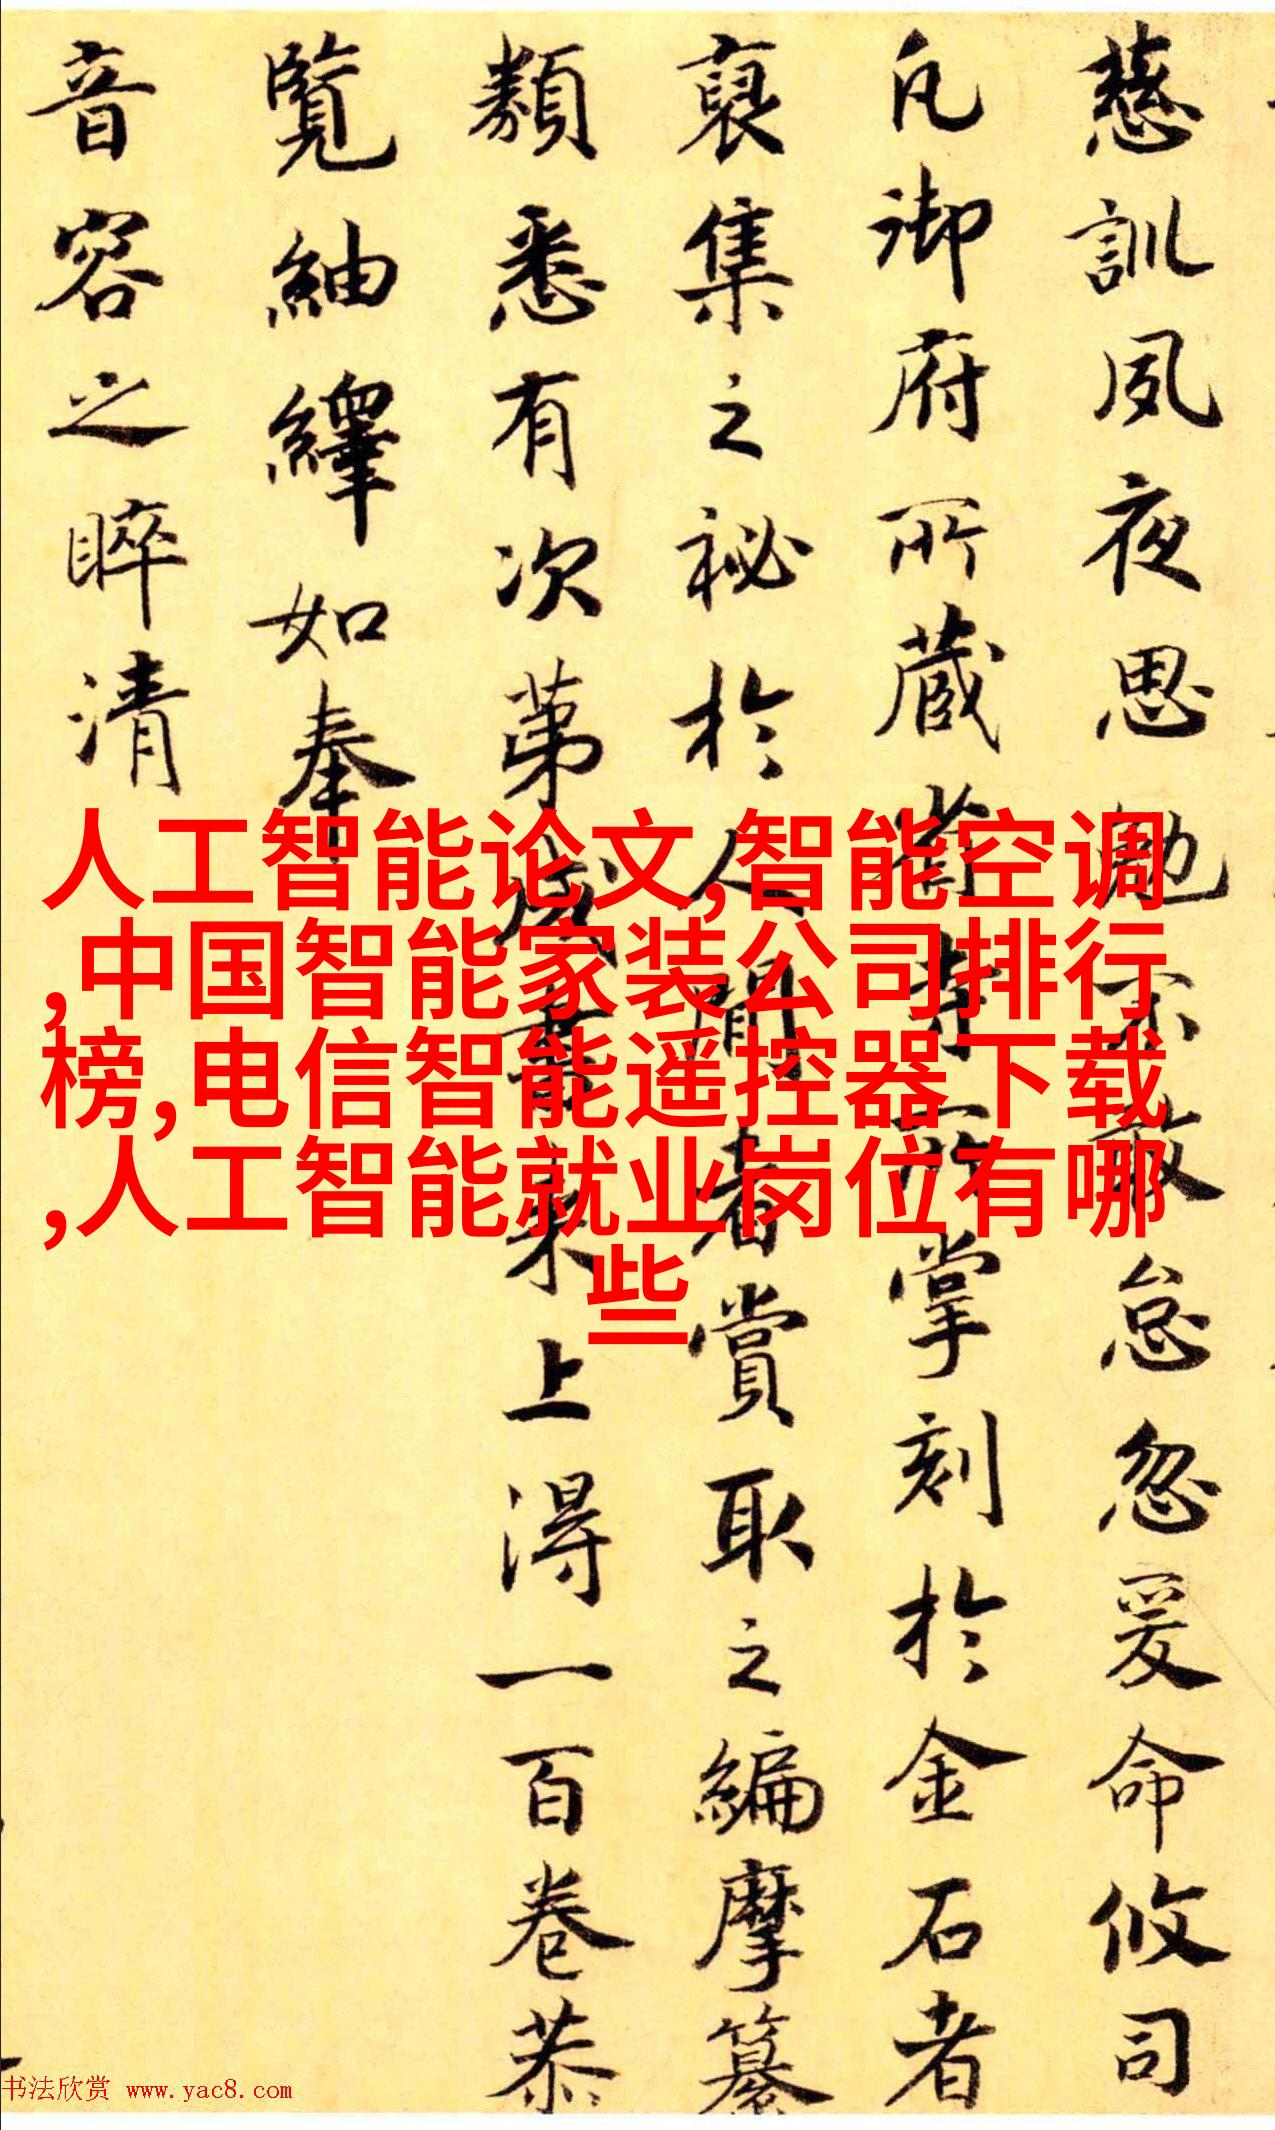 慈訓夙夜思勉不敢怠忽爰命攸司
凡御府所藏諸寺所掌刻於金石者
裒集之祕於人間者賞取之編摩纂
類悉有次第成書來上得一百卷恭
覽紬繹如奉
音容之睟清
人工智能论文,智能空调
,中国智能家装公司排行
榜,电信智能遥控器下载
,人工智能就业岗位有哪
些
书法欣赏 www.yac8.com